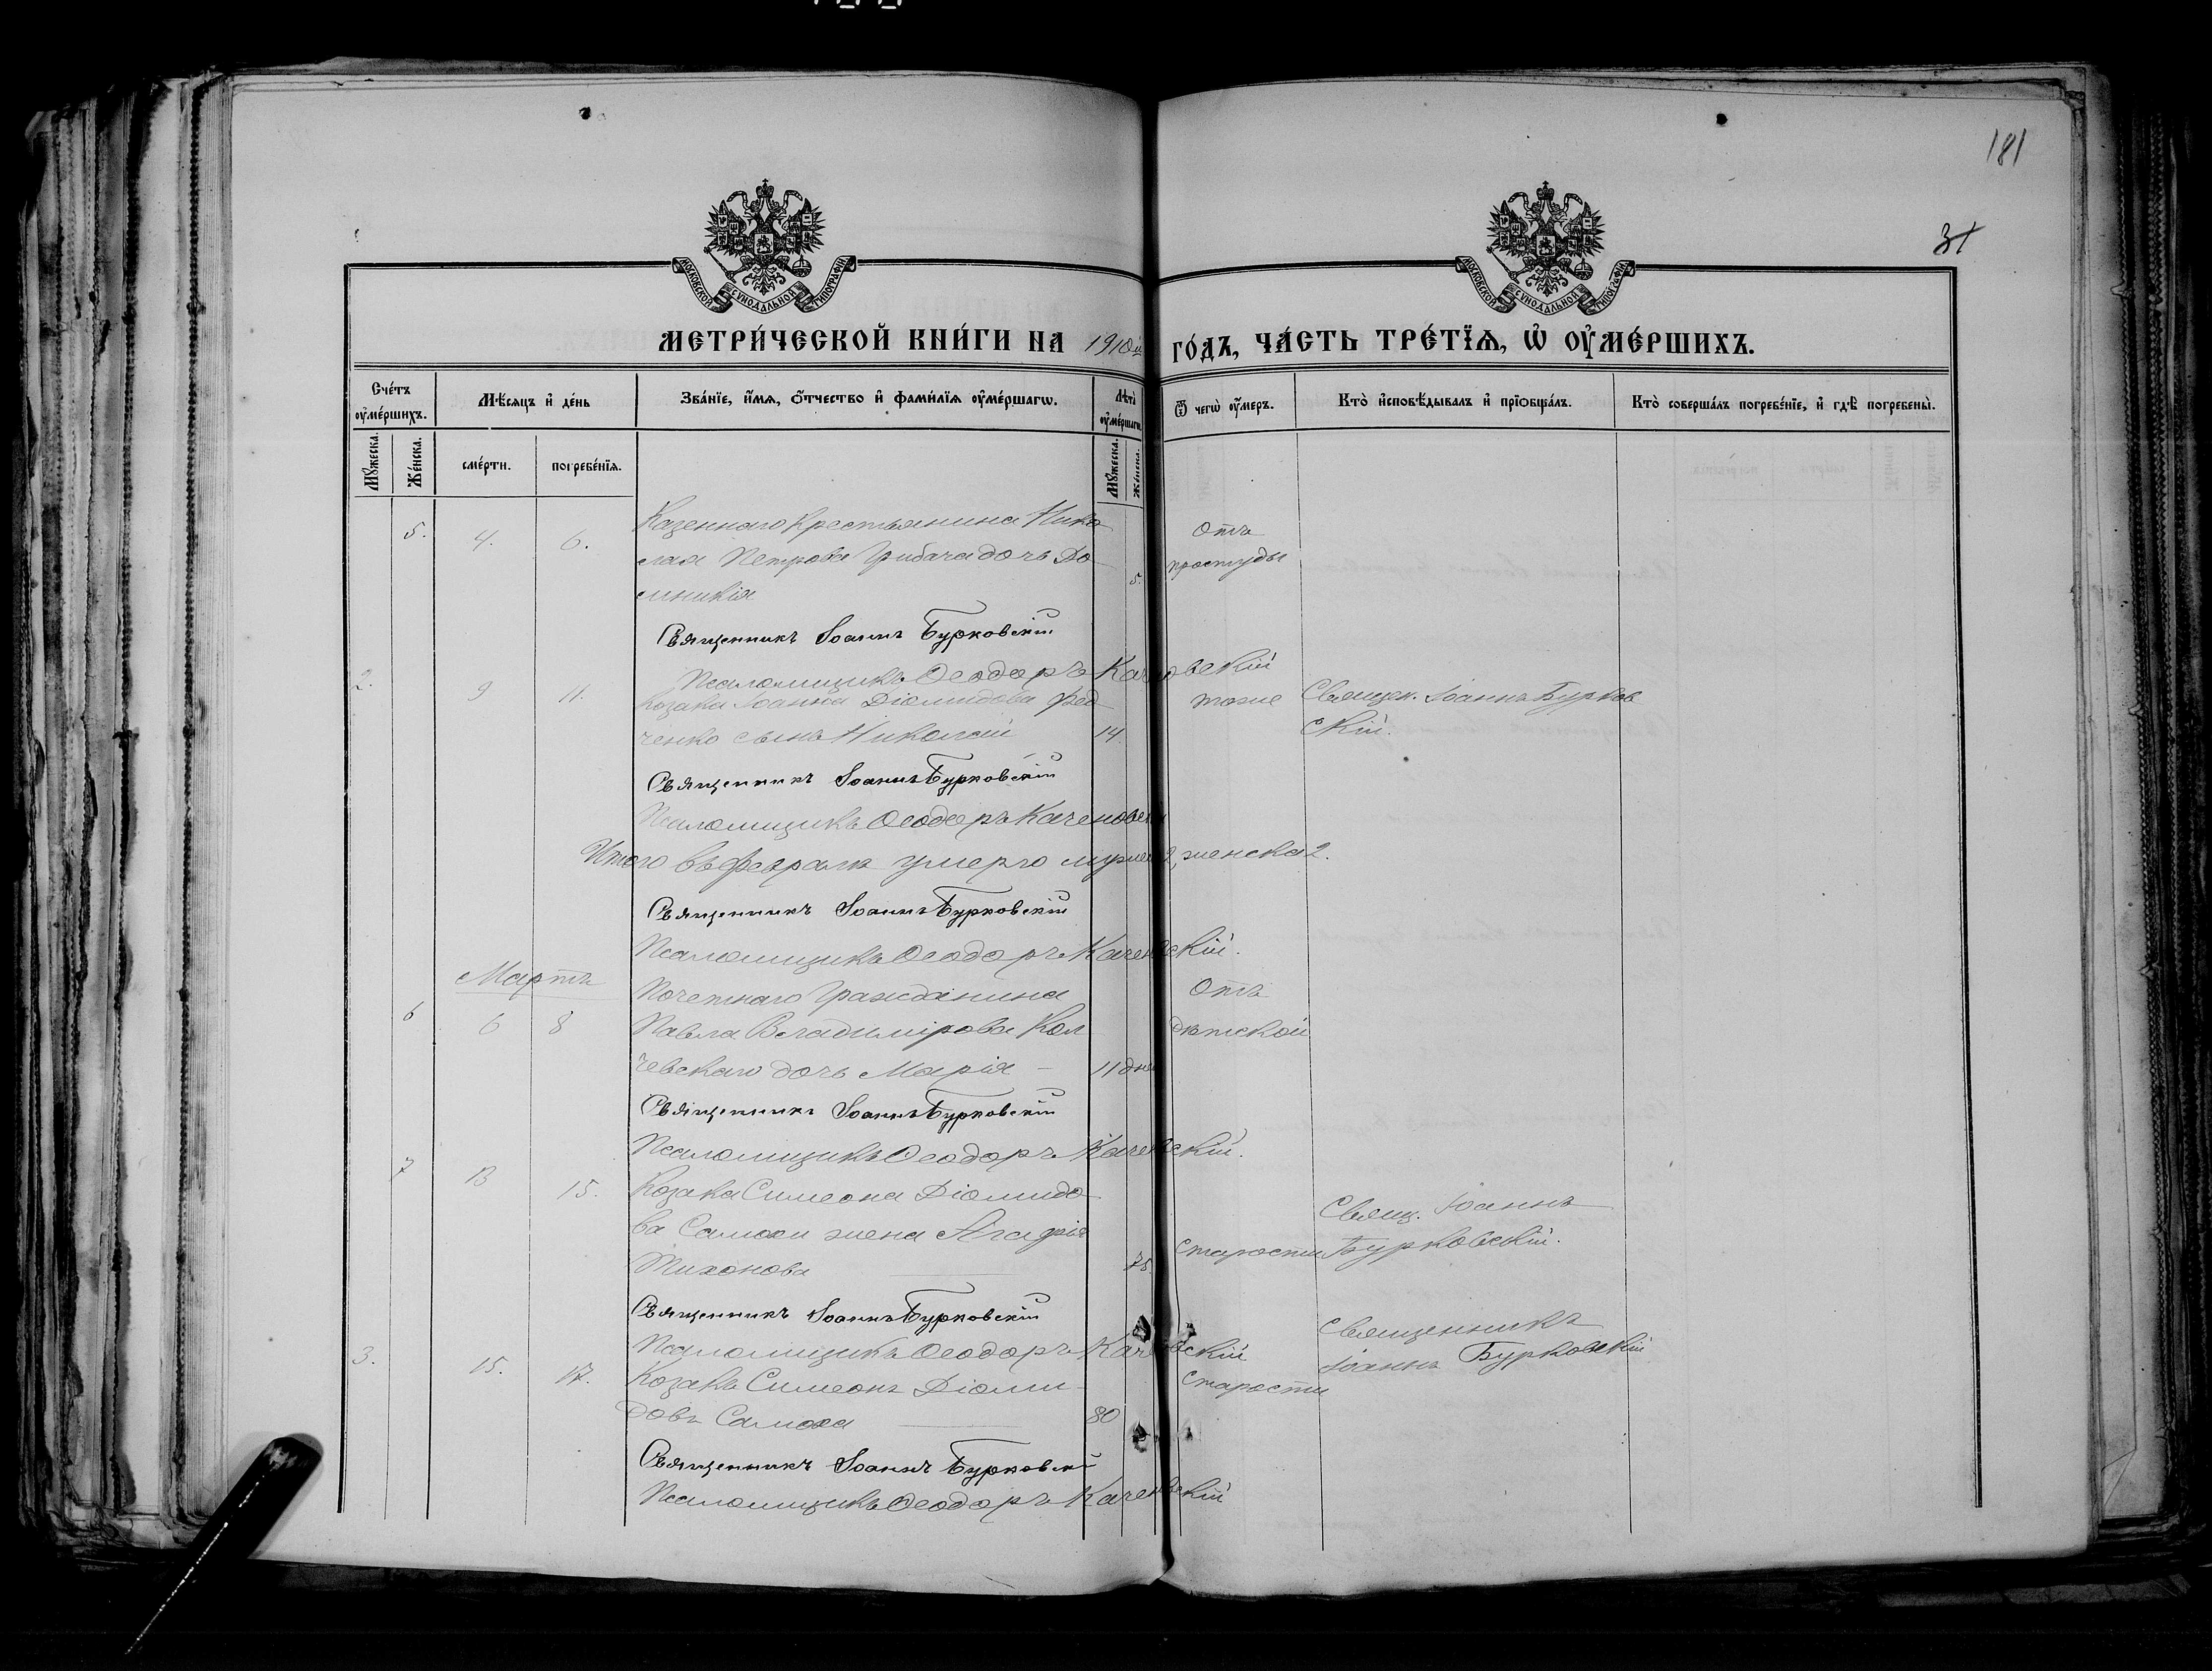 181
31
МОСКОВСКОЙ СѴНОДАЛЬНОЙ ТИПОГРАФІИ
МОСКОВСКОЙ СѴНОДАЛЬНОЙ ТИПОГРАФІИ
МЕТРИ́ЧЕСКОЙ КНИ́ГИ НА 1910й ГО́ДЪ, ЧА́СТЬ ТРЕ́ТЇѦ, Ѡ҆ ОУ҆МЕ́РШИХЪ.
Сче́тъ оу҆ме́ршихъ.
Мѣ́сѧцъ и҆ де́нь
Зва́нїе, и҆́мѧ, ѻ҆́тчество и҆ фами́лїѧ оу҆ме́ршагѡ.
Лѣ́та оу҆ме́ршагѡ
Ѿ чегѡ̀ оу҆́меръ.
Кто̀ и҆сповѣ́дывалъ и҆ прїѻбща́лъ.
Кто̀ соверша́лъ погребе́нїе, и҆ гдѣ̀ погребены̀.
Мꙋ́жеска.
Же́нска.
сме́рти.
погребе́нїѧ.
Мꙋ́жеска.
Же́нска.
5. 4. 6. Казеннаго Крестьянина Нико
лая Петрова Грибача дочь До
мникія 5. Отъ простуды
Священникъ Іоаннъ Бурковскій
Псаломщикъ Ѳеодоръ Качановскій
2. 9 11. Козака Іоанна Діомидова Фед
ченко сынъ Николай 14. тоже Священ. Іоаннъ Бурков
скій.
Священникъ Іоаннъ Бурковскій
Псаломщикъ Ѳеодоръ Каченовскій
Итого въ февралѣ умерло мужеска 2, женска 2.
Священникъ Іоаннъ Бурковскій
Псаломщикъ Ѳеодоръ Каченовскій.
Мартъ
6 6 8 Почетнаго Гражданина
Павла Владимірова Кол
чевскаго дочь Марія – 11 дня Отъ дѣтской
Священникъ Іоаннъ Бурковскій
Псаломщикъ Ѳеодоръ Каченовскій.
7 13 15. Козака Симеона Діомидо
ва Самохи жена Агафія
Тихонова 75. Старости Свящ. Іоаннъ
Бурковскій.
Священникъ Іоаннъ Бурковскій
Псаломщикъ Ѳеодоръ Каченовскій
3. 15. 17. Козакъ Симеонъ Діоми-
довъ Самоха 80 Старости Священникъ
Іоаннъ Бурковскій
Священникъ Іоаннъ Бурковскій
Псаломщикъ Ѳеодоръ Каченовскій